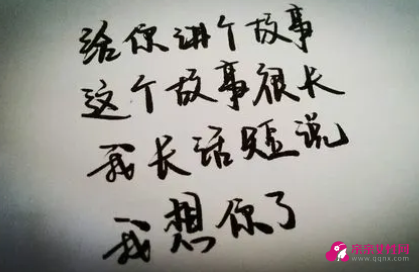 给你讲个故事
这个故事很长
我长话短说
我想你了
www.qqnx.com